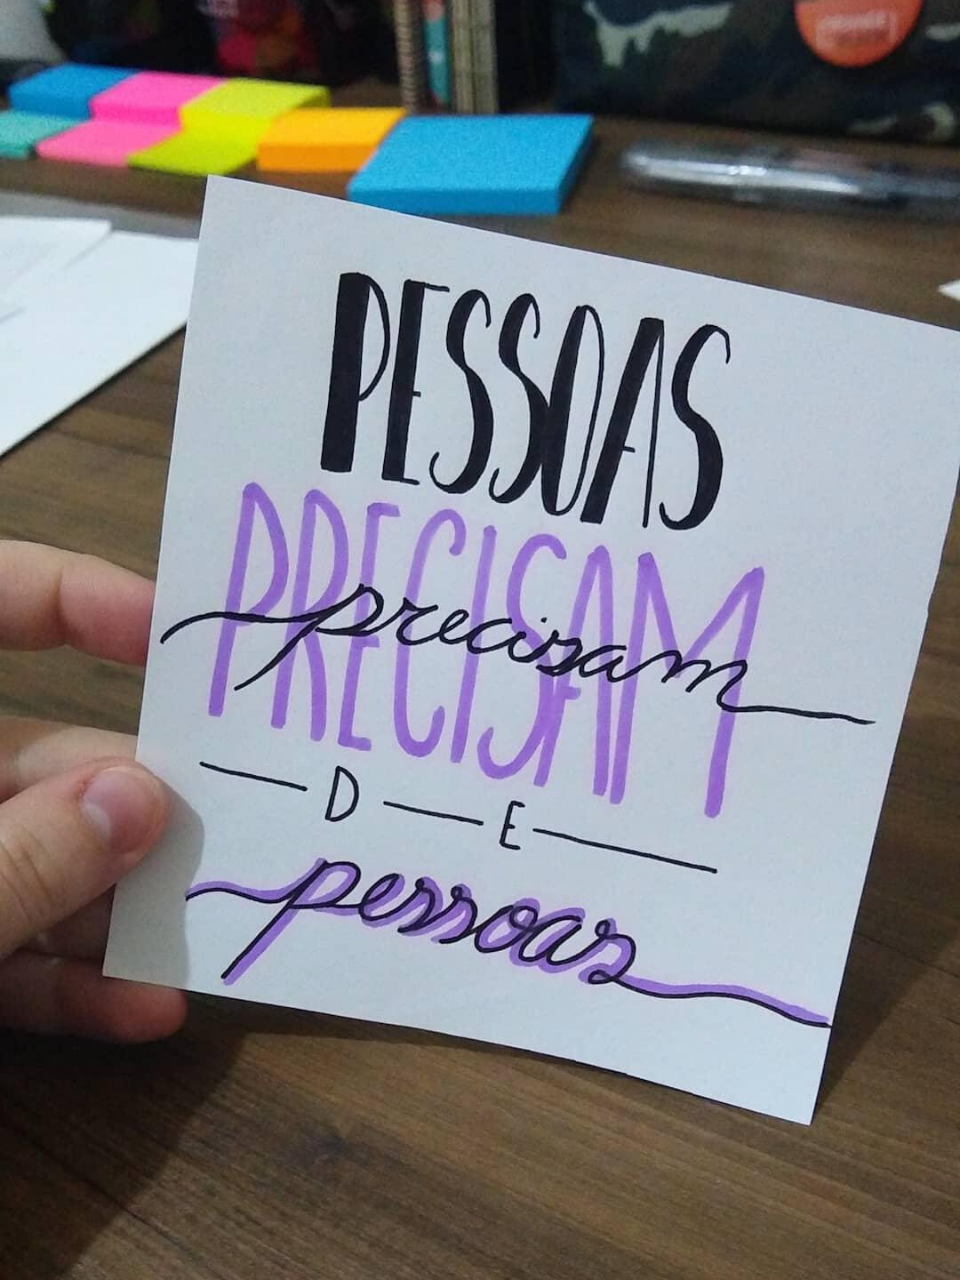 PESSOAS
PRECISAM
precisam
D E
pessoas